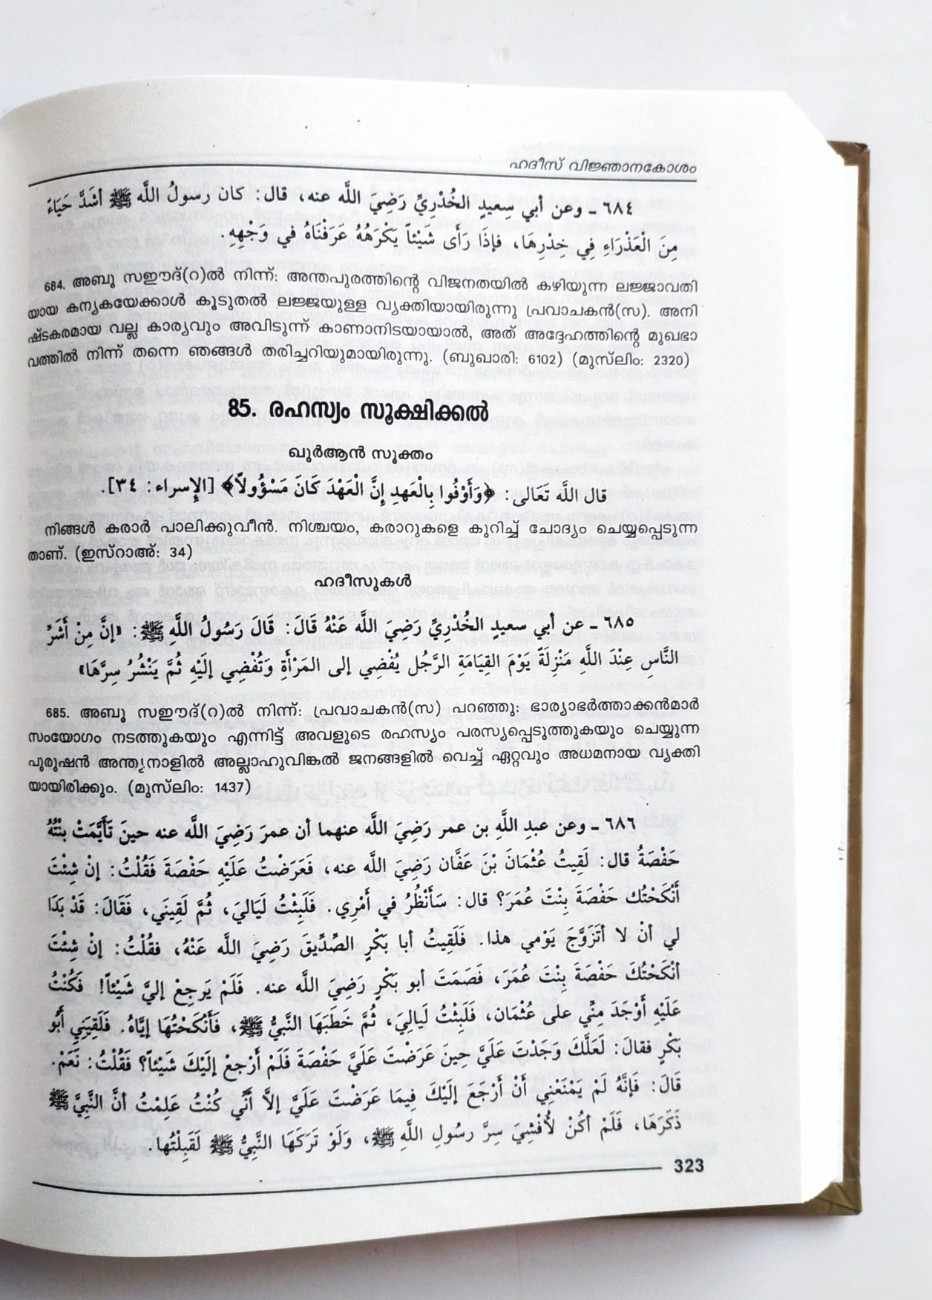 ഹദീസ് വിജ്ഞാനകോശം
٦٨٤ ـ وعن أبي سعيدٍ الخُدْرِيِّ رَضِيَ اللَّه عنه، قال: كان رسولُ اللَّه ﷺ أشَدَّ حَيَاءً
مِنَ الْعَذْرَاءِ فِي خِدْرِهَا، فإذَا رَأى شَيْئاً يَكْرَهُهُ عَرَفْنَاهُ في وَجْهِهِ.
684. അബൂ സഈദ്(റ)ൽ നിന്ന്: അന്തപുരത്തിന്റെ വിജനതയിൽ കഴിയുന്ന ലജ്ജാവതി
യായ കന്യകയേക്കാൾ കൂടുതൽ ലജ്ജയുള്ള വ്യക്തിയായിരുന്നു പ്രവാചകൻ(സ). അനി
ഷ്ടകരമായ വല്ല കാര്യവും അവിടുന്ന് കാണാനിടയായാൽ, അത് അദ്ദേഹത്തിന്റെ മുഖഭാ
വത്തിൽ നിന്ന് തന്നെ ഞങ്ങൾ തരിച്ചറിയുമായിരുന്നു. (ബുഖാരി: 6102) (മുസ്‌ലിം: 2320)
85. രഹസ്യം സൂക്ഷിക്കൽ
ഖുർആൻ സൂക്തം
قال اللَّه تَعَالى: ﴿وَأَوْفُوا بِالْعَهدِ إِنَّ الْعَهْدَ كَانَ مَسْؤُولاً﴾ [الإسراء: ٣٤].
നിങ്ങൾ കരാർ പാലിക്കുവീൻ. നിശ്ചയം, കരാറുകളെ കുറിച്ച് ചോദ്യം ചെയ്യപ്പെടുന്ന
താണ്. (ഇസ്റാഅ്: 34)
ഹദീസുകൾ
٦٨٥ ـ عن أبي سعيدٍ الخُدْرِيِّ رَضِيَ اللَّه عَنْهُ قَالَ: قَالَ رَسُولُ اللَّهِ ﷺ: «إنَّ مِنْ أَشَرِّ
النَّاسِ عِنْدَ اللَّهِ مَنْزِلَةً يَوْمَ القِيَامَةِ الرَّجُل يُفْضِي إلى المَرْأَةِ وَتُفْضِي إلَيْهِ ثُمَّ يَنْشُرُ سِرَّهَا»
685. അബൂ സഈദ്(റ)ൽ നിന്ന്: പ്രവാചകൻ(സ) പറഞ്ഞു: ഭാര്യാഭർത്താക്കൻമാർ
സംയോഗം നടത്തുകയും എന്നിട്ട് അവളുടെ രഹസ്യം പരസ്യപ്പെടുത്തുകയും ചെയ്യുന്ന
പുരുഷൻ അന്ത്യനാളിൽ അല്ലാഹുവിങ്കൽ ജനങ്ങളിൽ വെച്ച് ഏറ്റവും അധമനായ വ്യക്തി
യായിരിക്കും. (മുസ്‌ലിം: 1437)
٦٨٦ ـ وعن عبدِ اللَّهِ بن عمر رَضِيَ اللَّه عنهما أن عمرَ رَضِيَ اللَّه عنه حينَ تَأَيَّمَتْ بِنْتُهُ
حَفْصَةُ قال: لَقِيتُ عُثْمَانَ بْنَ عَفَّان رَضِيَ اللَّه عنه، فَعَرَضْتُ عَلَيْهِ حَفْصَةَ فَقُلْتُ: إنْ شِئْتَ
أَنْكَحْتُك حَفْصَةَ بِنْتَ عُمَرَ؟ قال: سَأَنْظُرُ في أَمْرِي. فَلَبِثْتُ لَيَاليَ، ثُمَّ لَقِيَني، فَقَالَ: قَدْ بَدَا
لي أنْ لا أتَزَوَّجَ يَوْمي هذا. فَلَقِيتُ أبا بَكْرٍ الصِّدِّيقَ رَضِيَ اللَّه عَنْهُ، فقُلْتُ: إنْ شِئْتَ
أنْكَحْتُكَ حَفْصَةَ بِنْتَ عُمَرَ، فَصَمَتَ أبو بَكْرٍ رَضِيَ اللَّه عنه. فَلَمْ يَرجِعْ إليَّ شَيْئاً! فَكُنْتُ
عَلَيْهِ أَوْجَدَ مِنِّي على عُثْمَان، فَلَبِثْتُ لَيَاليَ، ثُمَّ خَطَبَهَا النَّبيُّ ﷺ، فَأَنْكَحْتُهَا إيَّاهُ. فَلَقِيَني أَبُو
بَكْرٍ فقالَ: لَعَلَّكَ وَجَدْتَ عَلَيَّ حِينَ عَرَضْتَ عَلَيَّ حَفْصَةَ فَلَمْ أَرْجِعْ إلَيْكَ شَيْئاً؟ فَقُلْتُ: نَعَمْ.
قَالَ: فَإنَّهُ لَمْ يَمْنَعْني أَنْ أَرْجَعَ إلَيْكَ فِيمَا عَرَضْتَ عَلَيَّ إلاَّ أَنِّي كُنْتُ عَلِمْتُ أنَّ النَّبيَّ ﷺ
ذَكَرَهَا، فَلَمْ أكُنْ لأُفْشِيَ سِرَّ رسولِ اللَّهِ ﷺ، وَلَوْ تَرَكَهَا النَّبيُّ ﷺ لَقَبِلْتُها.
323